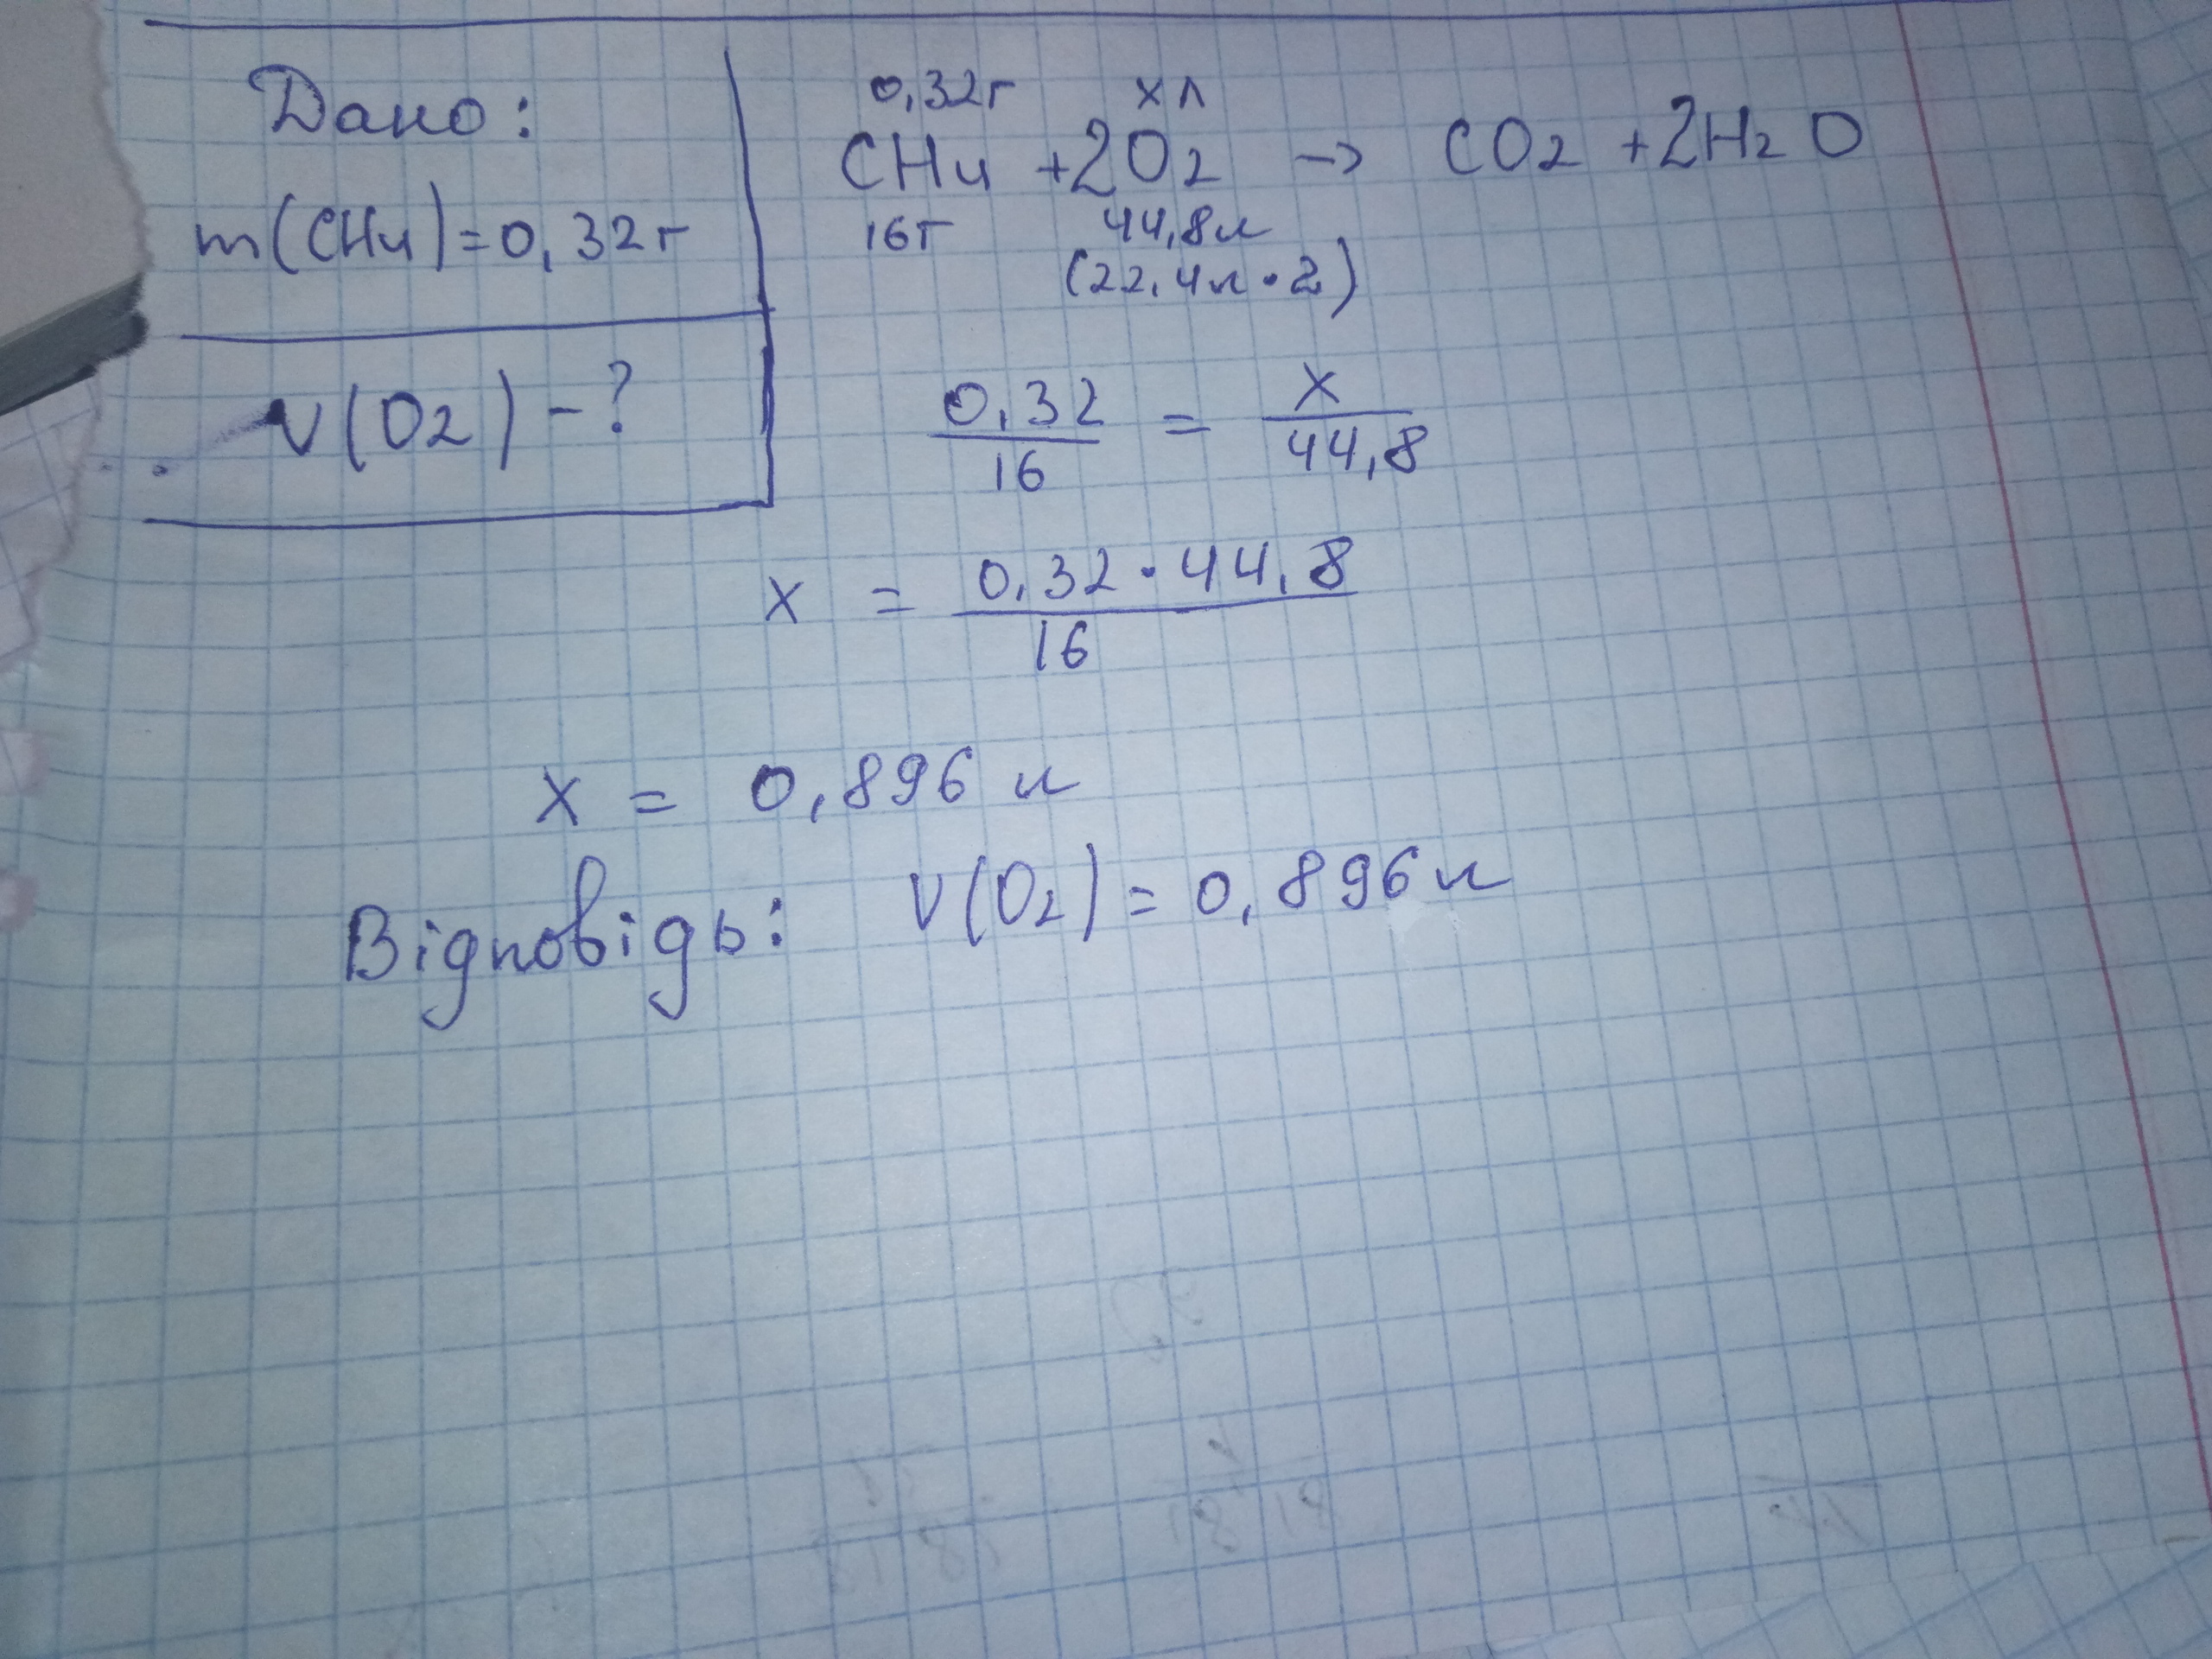 Дано:
m(CH4)=0,32г
V(O2)-?
0,32г хл
CH4 +2O2 -> CO2 +2H2O
16г 44,8л
(22,4л·2)
0,32 = x
16 44,8
x = 0,32·44,8
16
x = 0,896 л
Відповідь: V(O2)=0,896л